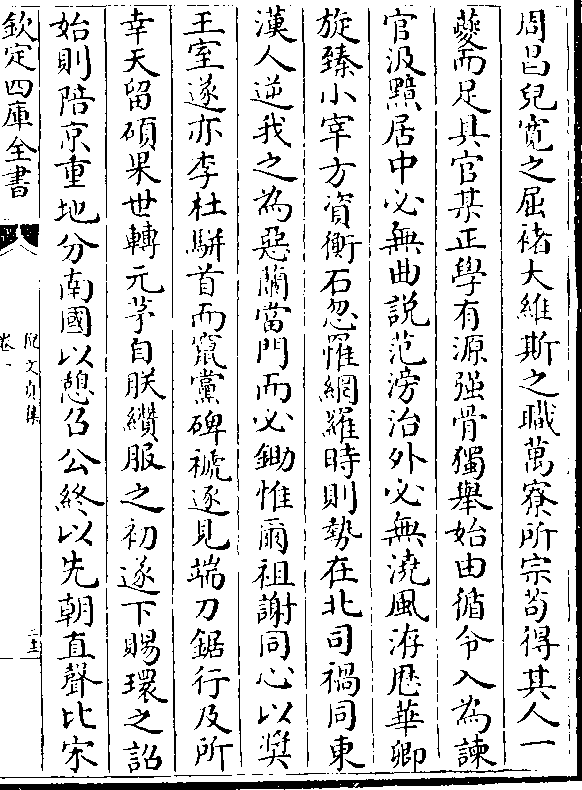 周昌兒寛之屈褚大維斯之職萬寮所宗苟得其人一
夔而足具官某正學有源强骨獨舉始由循令入為諫
官汲黯居中必無曲說范滂治外必無澆風洊歴華卿
旋臻小宰方資衡石忽罹網羅時則勢在北司禍同東
漢人逆我之為惡蘭當門而必鋤惟爾祖謝同心以奬
王室遂亦李杜駢首而竄黨碑禠逐見端刀鋸行及所
幸天留碩果世轉元茅自朕纘服之初遂下賜環之詔
始則陪京重地分南國以憩召公終以先朝直聲比宋
欽定四庫全書
倪文貞集
卷一